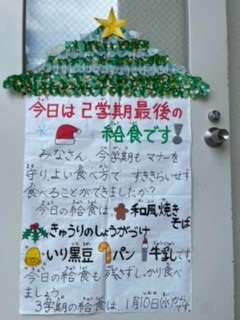 今日は2学期最後の
給食です!
みなさん、今学期も マナーを
守り、よい食べ方で すききらいせず
食べることができましたか?
今日の給食は 和風焼き
そば
きゅうりのしょうがづけ
いり黒豆 パン 牛乳です。
今日の給食も 残さずしっかり食べ
ましょう。
3学期の給食は、1月10日(火)からです。